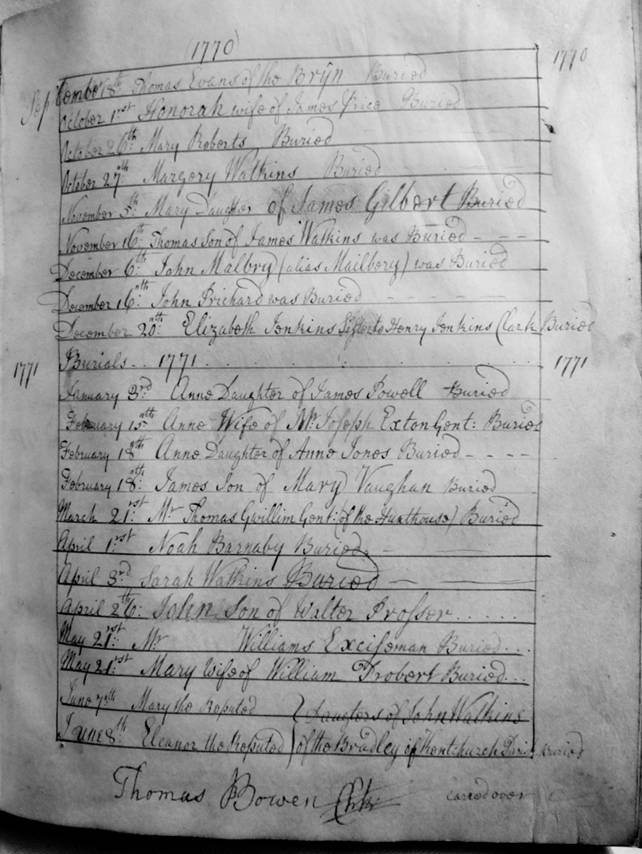 (1770)
1770
September 18th Thomas Evans of the Bryn Buried
October 1st Honorah wife of James Price Buried
October 26th: Mary Roberts Buried
October 27th Margery Watkins Buried
November 5th Mary Daughter of James Gilbert Buried
November 16th: Thomas Son of James Watkins was Buried - - -
December 6th: John Malbry (alias Mailbery) was Buried
December 16th: John Prichard was Buried
December 20th: Elizabeth Jenkins Sister to Henry Jenkins Clark Buried
1771 Burials.. 1771 1771
January 3rd Anne Daughter of James Powell Buried
February 15th Anne Wife of Mr. Joseph Exton Gent: Buried
February 18th Anne Daughter of Anne Jones Buried - - - -
February 18th: James Son of Mary Vaughan Buried
March 21st: Mr Thomas Gwillim Gent: (of the Hunthouse) Buried
April 1st Noah Barnaby Buried
April 3rd Sarah Watkins Buried
April 26: John Son of Walter Prosser......
May 21st: Mr Williams Exciseman Buried...
May 21st Mary Wife of William Probert Buried...
June 7th Mary the Reputed } Daughters of John Watkins
June 8th Eleanor the Reputed } of the Bradley of Kentchurch Parish Buried
Thomas Bowen Clk carried over